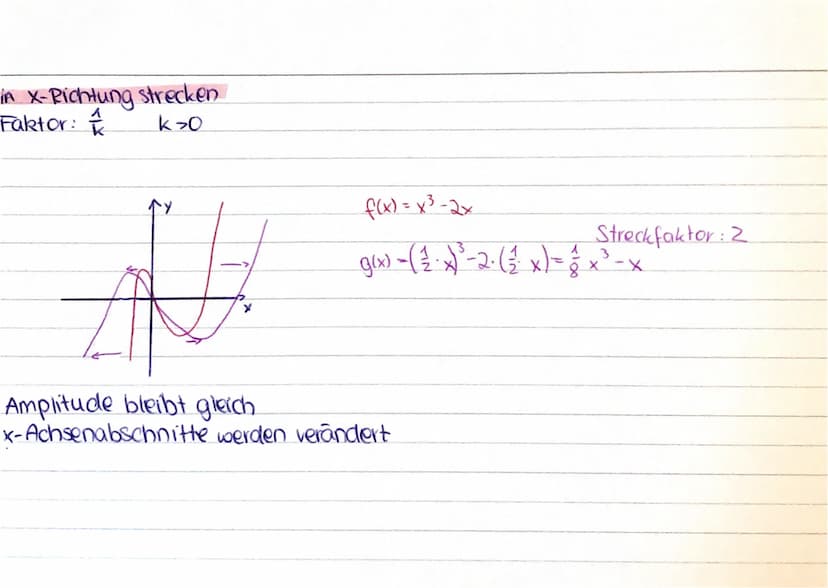 in x-Richtung strecken
Faktor: 1/k k>0
y
x
f(x) = x³-2x
Streckfaktor: 2
g(x) = (1/2 · x)³-2·(1/2 · x) = 1/8 x³-x
Amplitude bleibt gleich
x-Achsenabschnitte werden verändert